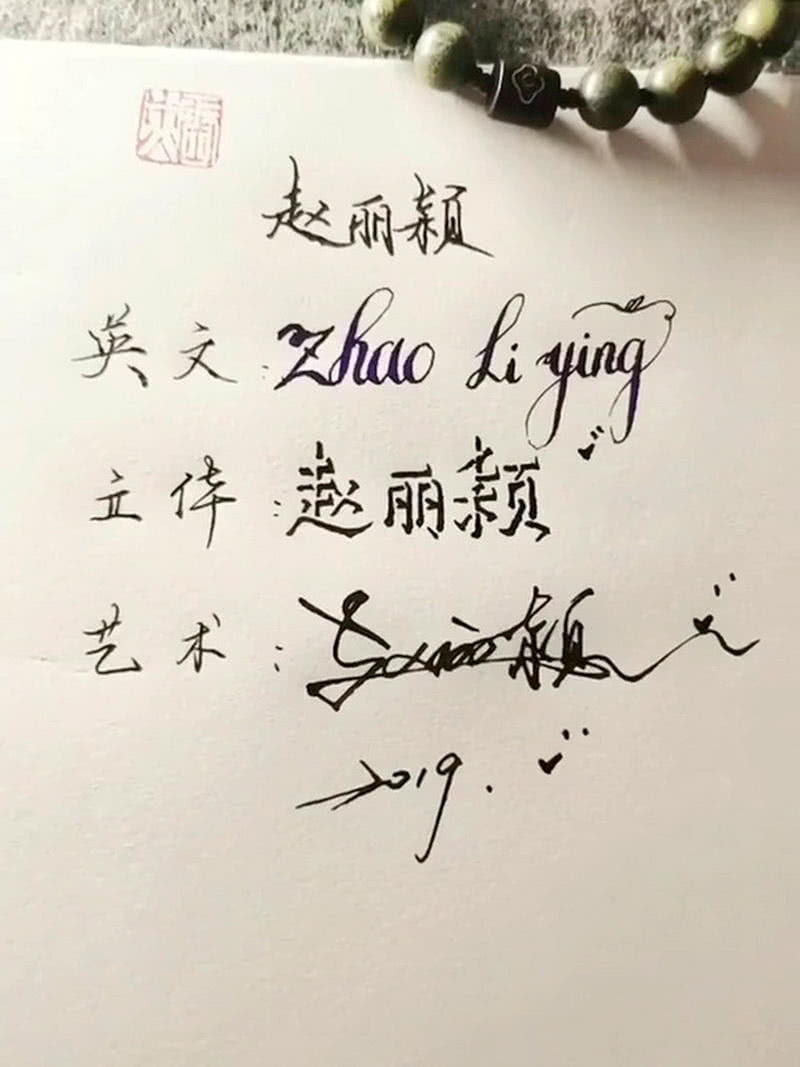 赵丽颖
英文:Zhao Li ying
立体:赵丽颖
艺术:赵丽颖
2019.